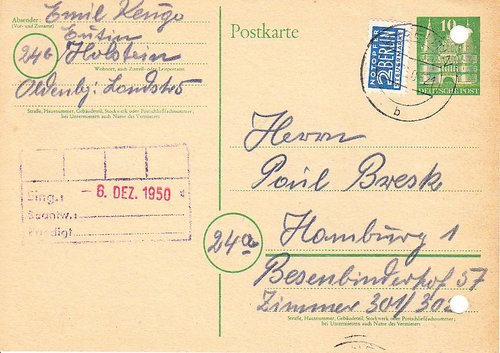 Absender: Emil Kengo
(Vor- und Zuname)
Eutin
24b Holstein
Wohnort, auch Zustell- oder Leitpostamt
Oldenbg. Landstr 5
Straße, Hausnummer, Gebäudeteil, Stockwerk oder Postschließfachnummer,
bei Untermietern auch Name des Vermieters
Postkarte
NOTOPFER
2 BERLIN
STEUERMARKE
10
DEUTSCHE POST
b
Eing.:
- 6. DEZ. 1950
Beantw.:
Erledigt
Herrn
Paul Bresk
24a
Hamburg 1
Besenbinderhof 57
Zimmer 301/302
Straße, Hausnummer, Gebäudeteil, Stockwerk oder Postschließfachnummer,
bei Untermietern auch Name des Vermieters